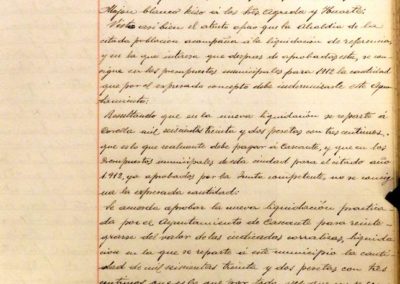 blanco hizo á los Sres Agreda y Huarte:
Visto asi bien el atento oficio que la Alcaldía de la
citada poblacion acompaña á la liquidación de referencia,
y en la que interesa que despues de aprobada esta, se con-
signe en los presupuestos municipales para 1912 la cantidad
que por el expresado concepto debe indemnizarle este Ayun-
tamiento:
Resultando que en la nueva liquidación se reparte á
Corella mil treinta y dos pesetas con tres centimos,
que es lo que realmente debe pagar á Cascante, y que en los
Presupuestos municipales de esta ciudad para el citado año
1.912, ya aprobados por la Junta competente, no se consig-
na la expresada cantidad:
Se acuerda aprobar la nueva liquidación practica-
da por el Ayuntamiento de Cascante para reinte-
grarse del valor de las indicadas corralizas, liquida-
cion en la que se reparte á este municipio la canti-
dad de mil treinta y dos pesetas con tres
centimos que es lo que por